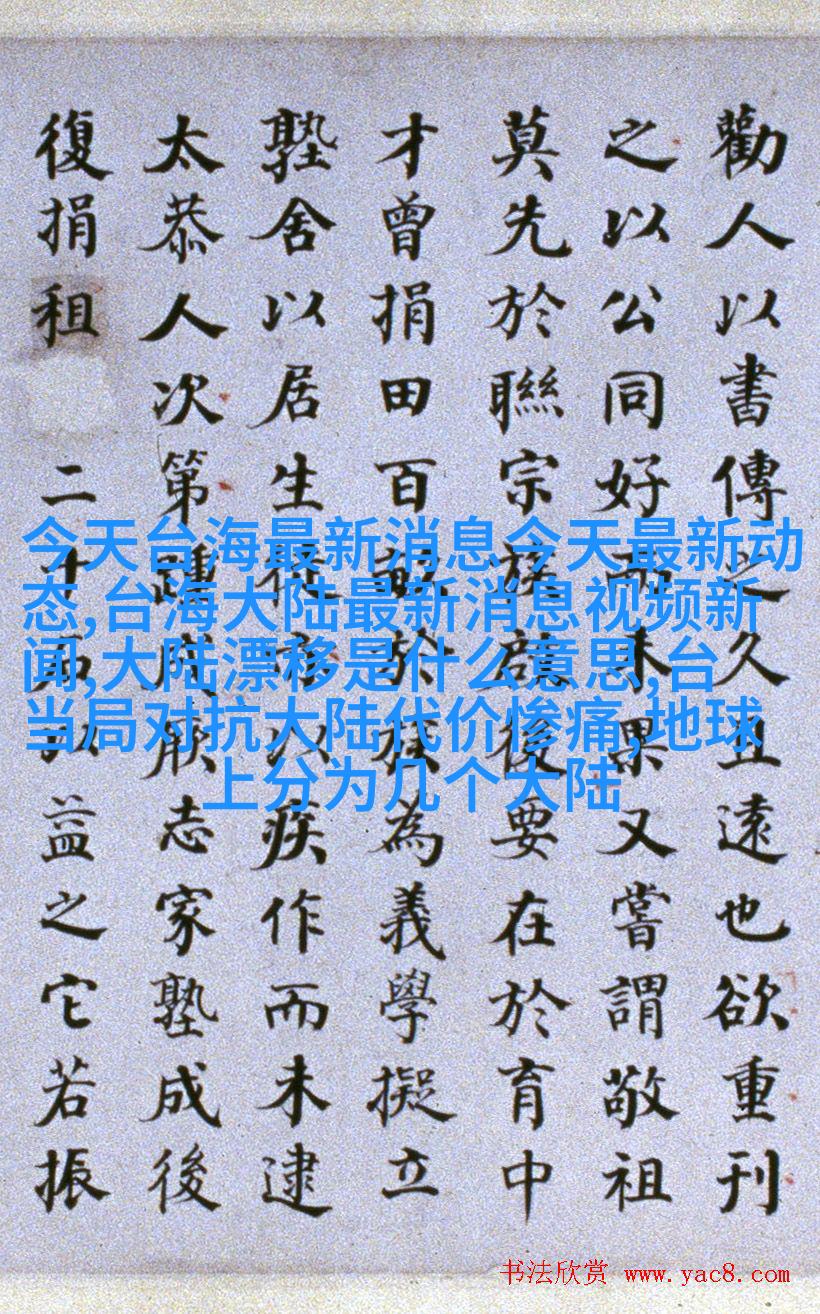 勸人以書傳之久且遠也欲重刊
之以公同好而未果又嘗謂敬祖
莫先於聯宗族啟後要在於育中
才曾捐田百畝於族為義學擬立
塾舍以居生徒以疾作而未逮
太恭人次第踵成厥志家塾成後
復捐租二十石以益之它若振
今天台海最新消息今天最新动
态,台海大陆最新消息视频新
闻,大陆漂移是什么意思,台
当局对抗大陆代价惨痛,地球
上分为几个大陆
书法欣赏 www.yac8.com